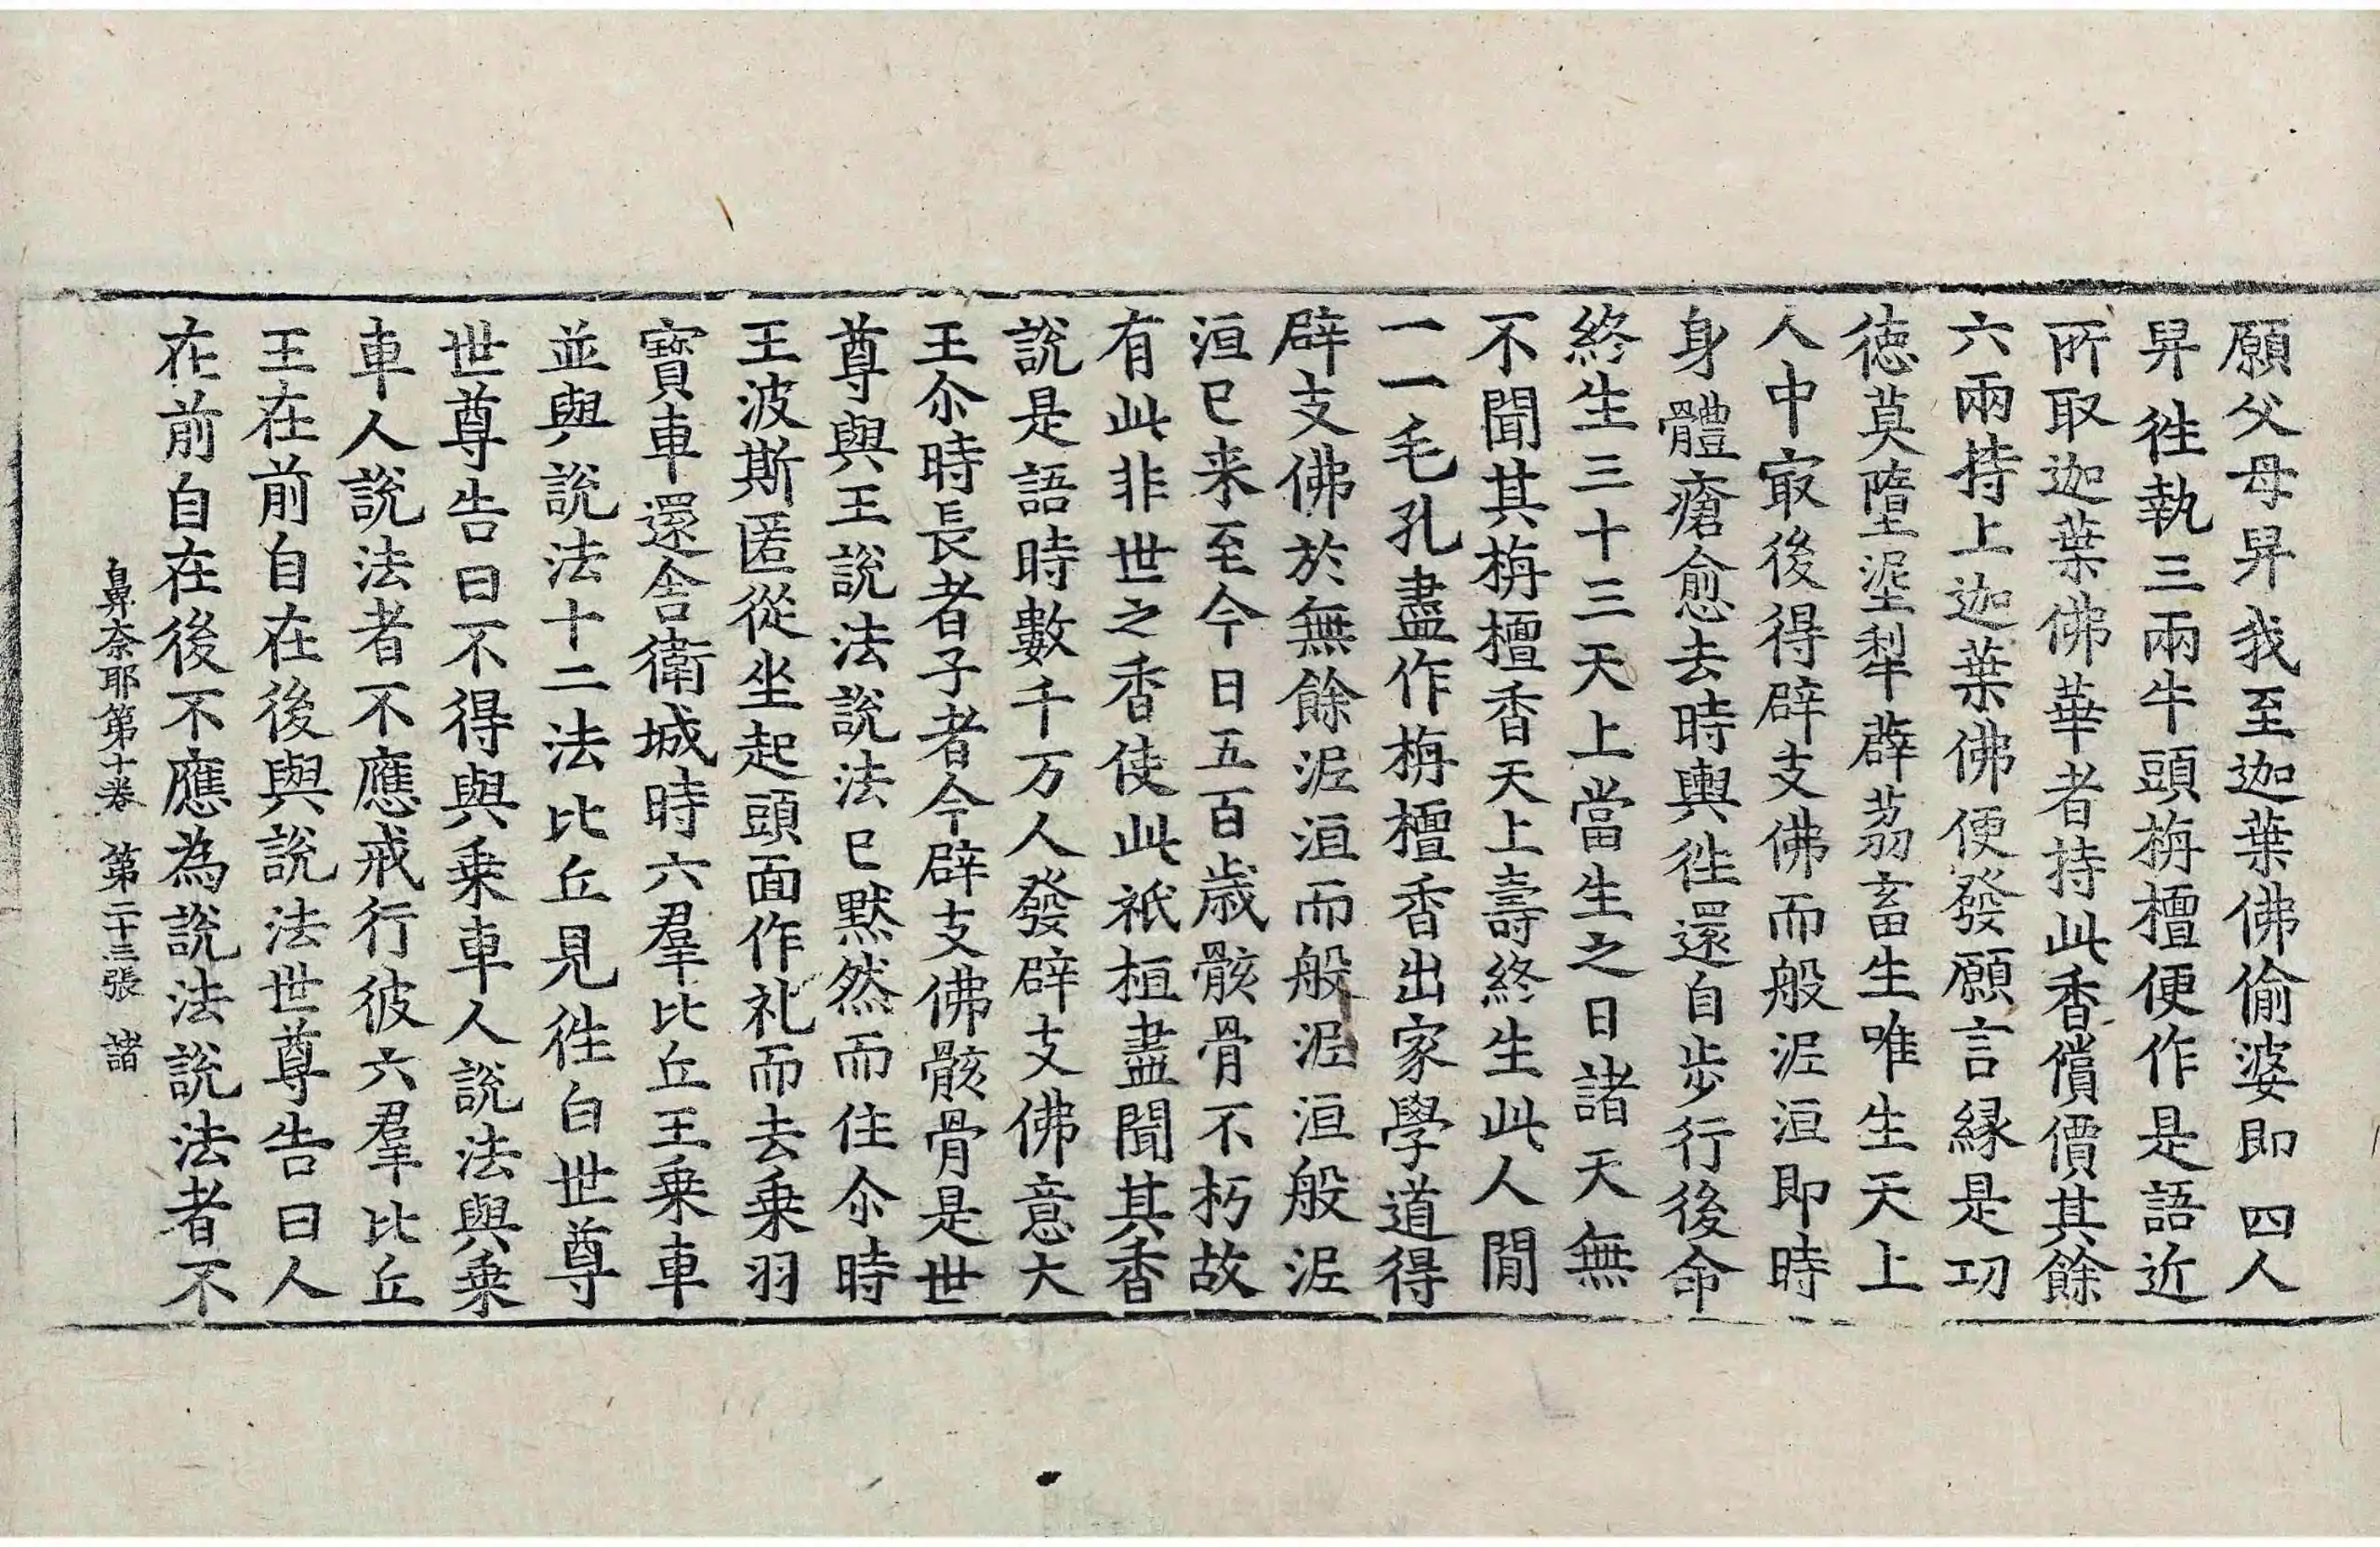 願父母舁我至迦葉佛偷婆即四人
舁徃執三兩牛頭栴檀便作是語近
所取迦葉佛華者持此香償價其餘
六兩持上迦葉佛便發願言縁是功
徳莫墮泥犁薜荔畜生唯生天上
人中㝡後得辟支佛而般泥洹即時
身體瘡愈去時輿徃還自步行後命
終生三十三天上當生之日諸天無
不聞其栴檀香天上壽終生此人間
一一毛孔盡作栴檀香出家學道得
辟支佛於無餘泥洹而般泥洹般泥
洹已来至今日五百歳骸骨不朽故
有此非世之香使此祇桓盡聞其香
說是語時數千万人發辟支佛意大
王尒時長者子者今辟支佛骸骨是世
尊與王說法說法已默然而住尒時
王波斯匿從坐起頭面作礼而去乗羽
寳車還舍衛城時六羣比丘王乗車
並與說法十二法比丘見徃白世尊
世尊告曰不得與乗車人說法與乗
車人說法者不應戒行彼六羣比丘
王在前自在後與說法世尊告曰人
在前自在後不應為說法說法者不
鼻奈耶第十卷 第二十三張 諸